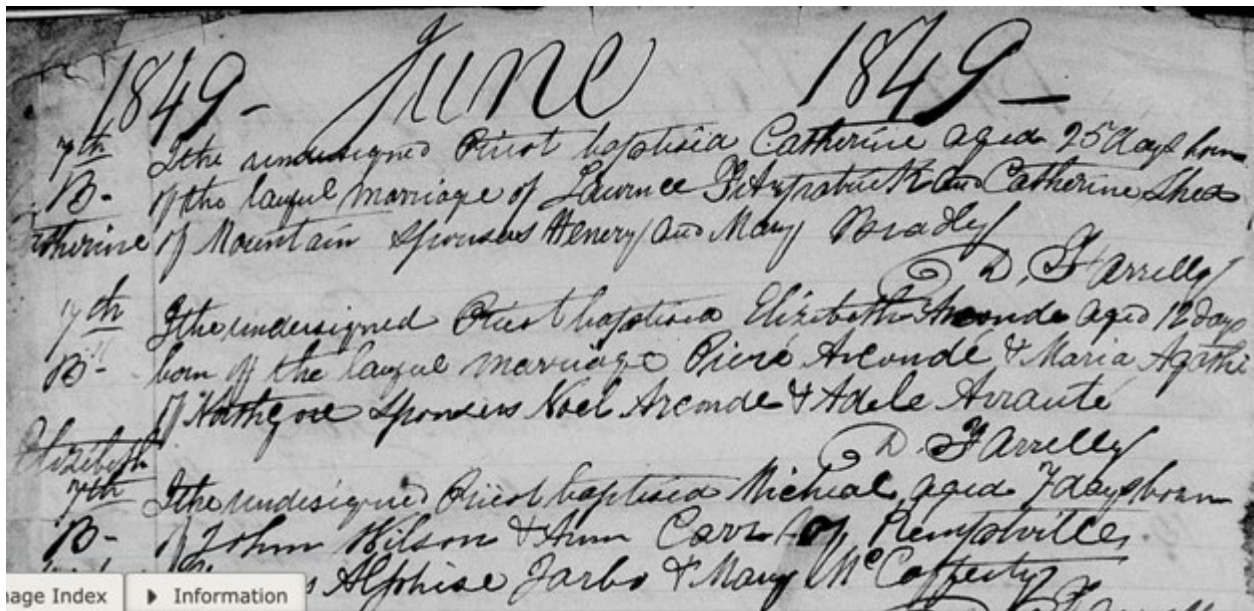 1849- June 1849-
7th I the undersigned Priest baptised Catherine aged 25 days born
B- of the lawful marriage of Laurnce Fitzpatrick and Catherine Shea
Catherine of Mountain Sponsers Henery and Mary Bradley
D. Farrelly
7th I the undersigned Priest baptised Elizabeth Arconde aged 12 days
B- born of the lawful marriage Pieré Arcondé & Maria Agathe
of Sponsers Noel Arconde & Adele
Elizabeth D. Farrelly
7th I the undesigned Priest baptised Micheal aged 7 days born
B- of John Wilson & Ann Carr of Kemptville
Alphise & Mary McCafferty
age Index Information